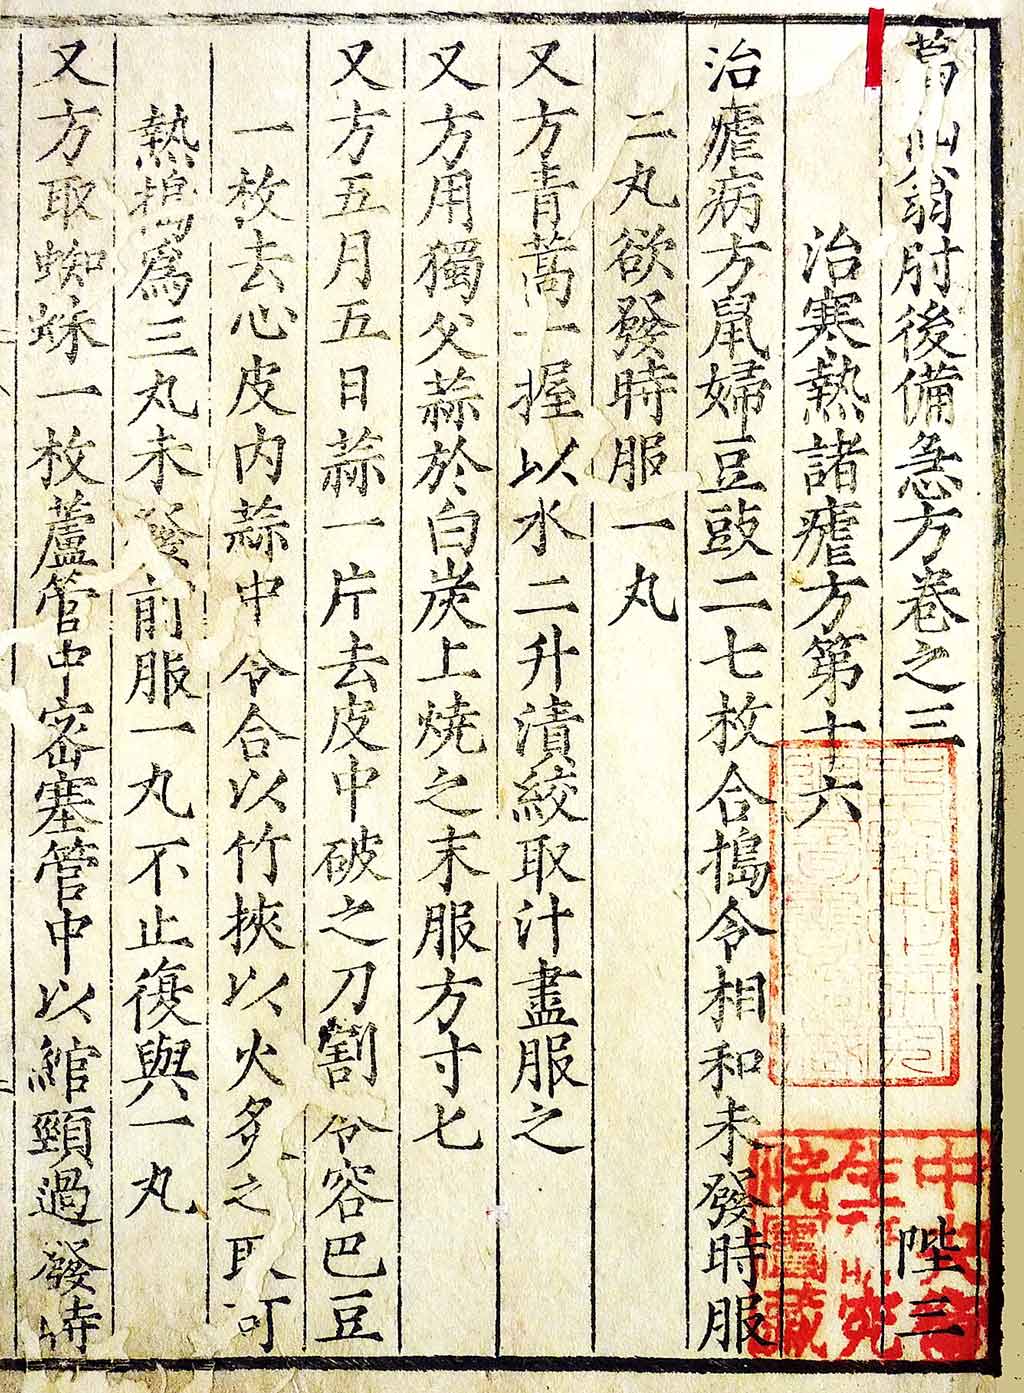 葛仙翁肘後備急方卷之三 陛三
治寒熱諸瘧方第十六
治瘧病方鼠婦豆豉二七枚合搗令相和未發時服
二丸欲發時服一丸
又方青蒿一握以水二升漬絞取汁盡服之
又方用獨父蒜於白炭上燒之末服方寸匕
又方五月五日蒜一片去皮中破之刀割令容巴豆
一枚去心皮内蒜中令合以竹挾以火炙之取可
熱搗爲三丸未發前服一丸不止復與一丸
又方取蜘蛛一枚蘆管中密塞管中以綰頸過發時
中醫研究院圖書藏